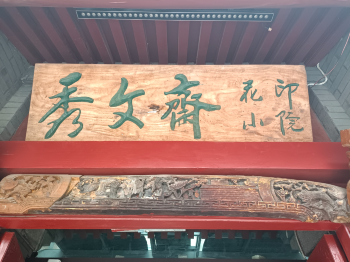 秀文齋
花山
印院